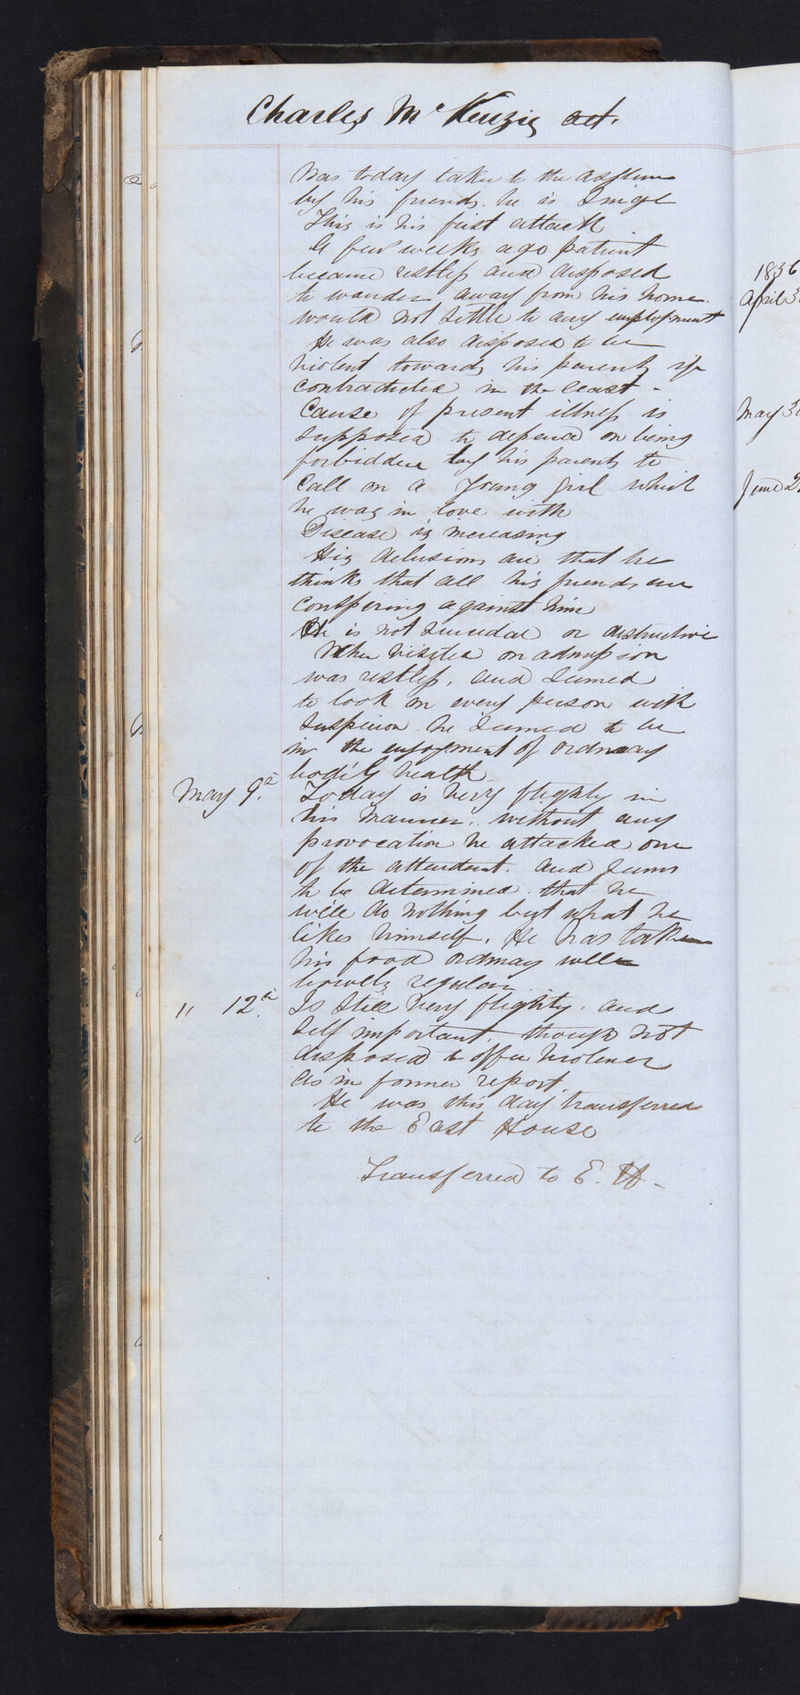 Charles McKenzie aet.
Was today taken to the asylum
by his friends. he is Single
This is his first attack
A few weeks ago patient
became restless and disposed
to wander away from his home.
would not settle to any employment
He was also disposed to be
violent towards his parents if
contradicted in the least -
Cause of present illness is
supposed to depend on being
forbidden by his parents to
Call on a young girl which
he was in love with
Disease is increasing
His delusions are that he
thinks that all his friends are
conspiring against him
He is not suicidal or destructive
When visited on admission
was restless, and seemed
to look on every person with
suspicion he seemed to be
in the enjoyment of ordinary
bodily health
May 9th. Today is very flighty in
his manner. without any
provocation he attacked one
of the attendant. and seems
to be determined that he
will do nothing but what he
likes himself. He has taken
his food ordinary well
bowels regular
" 12th. Is still very flighty, and
self important, though not
disposed to offer violence
as in former report.
He was this day transferred
to the East House
Transferred to E. H -
1856
April 3
May 3
June 2